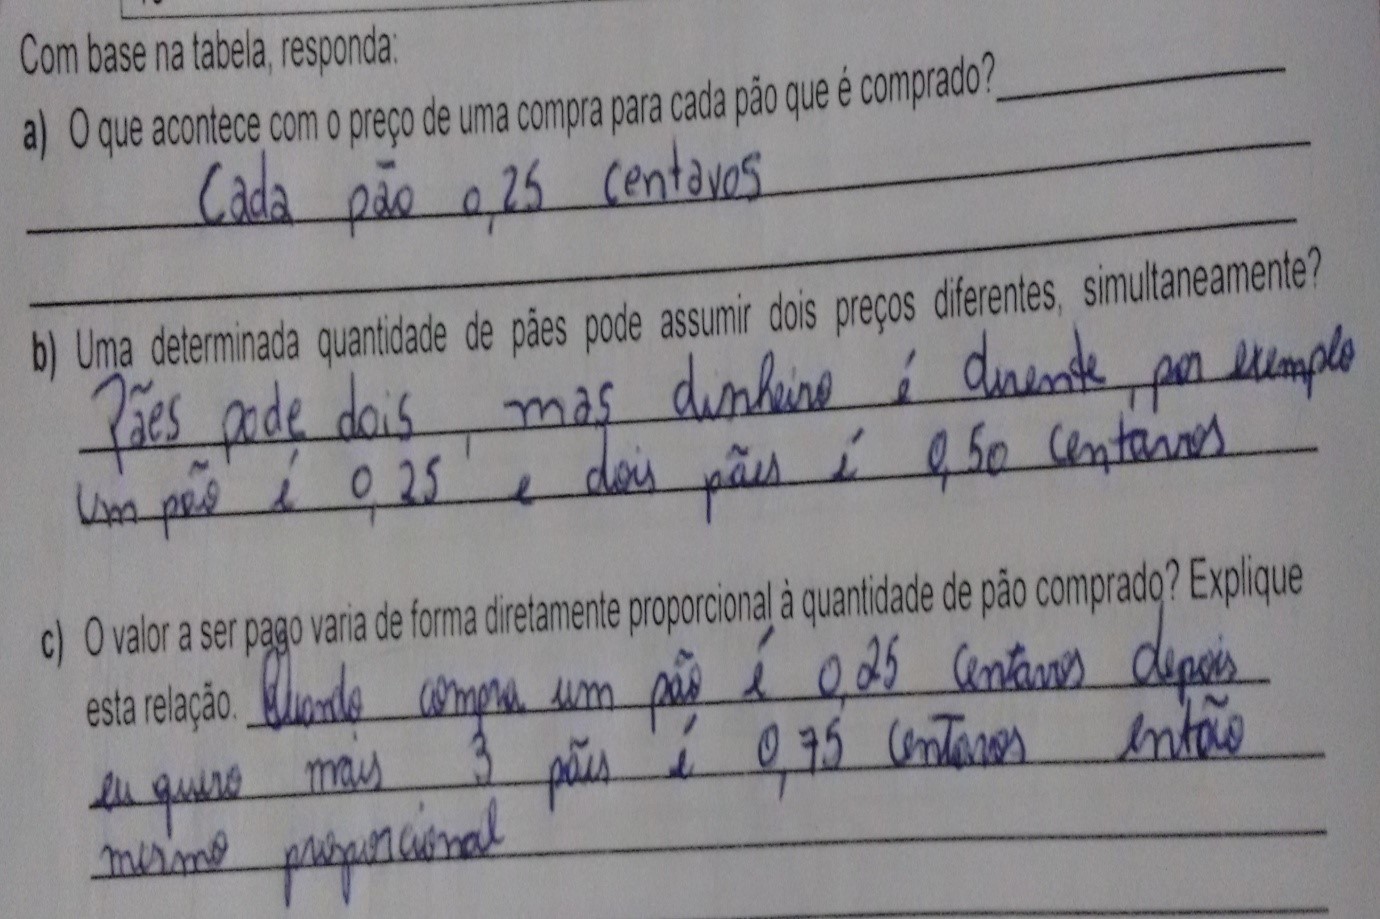 Com base na tabela, responda:
a) O que acontece com o preço de uma compra para cada pão que é comprado?
Cada pão 0,25 centavos
b) Uma determinada quantidade de pães pode assumir dois preços diferentes, simultaneamente?
Pães pode dois, mas dinheiro é dirente, por exemplo
Um pão é 0,25 e dois pães é 0,50 centavos
c) O valor a ser pago varia de forma diretamente proporcional à quantidade de pão comprado? Explique
esta relação. Quando compra um pão é 0,25 centavos depois
eu quero mais 3 pães é 0,75 centavos então
mesmo proporcional